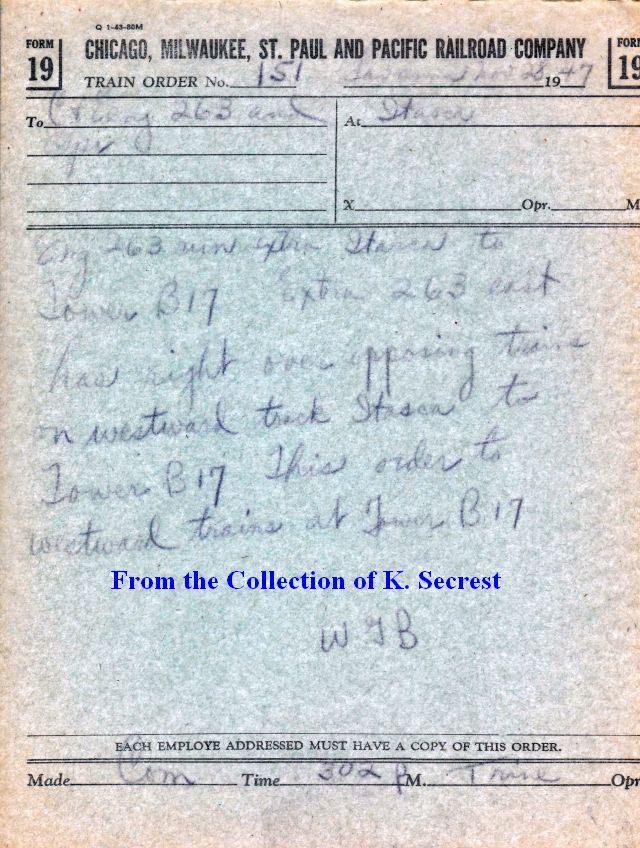 Q 1-43-80M
FORM 19 CHICAGO, MILWAUKEE, ST. PAUL AND PACIFIC RAILROAD COMPANY FORM 19
TRAIN ORDER No. 151 Nov 28 1947
To C & E Eng 263 and At Itasca
Opr
X Opr. M
Eng 263 run extra Itasca to
Tower B17 Extra 263 east
has right over opposing trains
on westward track Itasca to
Tower B17 This order to
westward trains at Tower B17
From the Collection of K. Secrest
WGB
EACH EMPLOYE ADDRESSED MUST HAVE A COPY OF THIS ORDER.
Made Com Time 302 P M. Opr